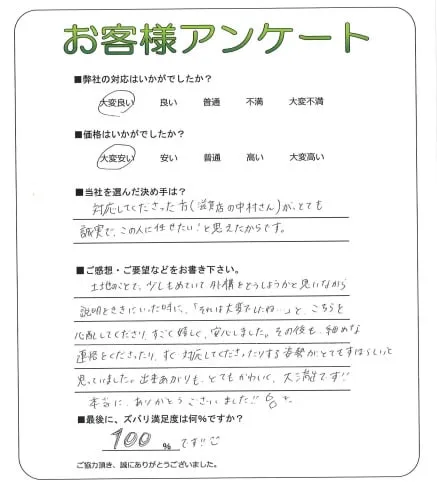 お客様アンケート
■弊社の対応はいかがでしたか？
大変良い 良い 普通 不満 大変不満
■価格はいかがでしたか？
大変安い 安い 普通 高い 大変高い
■当社を選んだ決め手は？
対応してくださった方(滋賀店の中村さん)が、とても
誠実で、この人に任せたい！と思えたからです。
■ご感想・ご要望などをお書き下さい。
土地のことで、少しもめていて外構をどうしようかと思いながら
説明をききにいった時に、「それは大変でしたね…」と、こちらを
心配してくださり、すごく嬉しく、安心しました。その後も、細めな
連絡をくださったり、すぐ対応してくださったりする姿勢がとてもすばらしいと
思っていました。出来あがりも、とてもかわいく、大満足です!!
本当に、ありがとうございました!!
■最後に、ズバリ満足度は何％ですか？
100 ％ です!!
ご協力頂き、誠にありがとうございました。